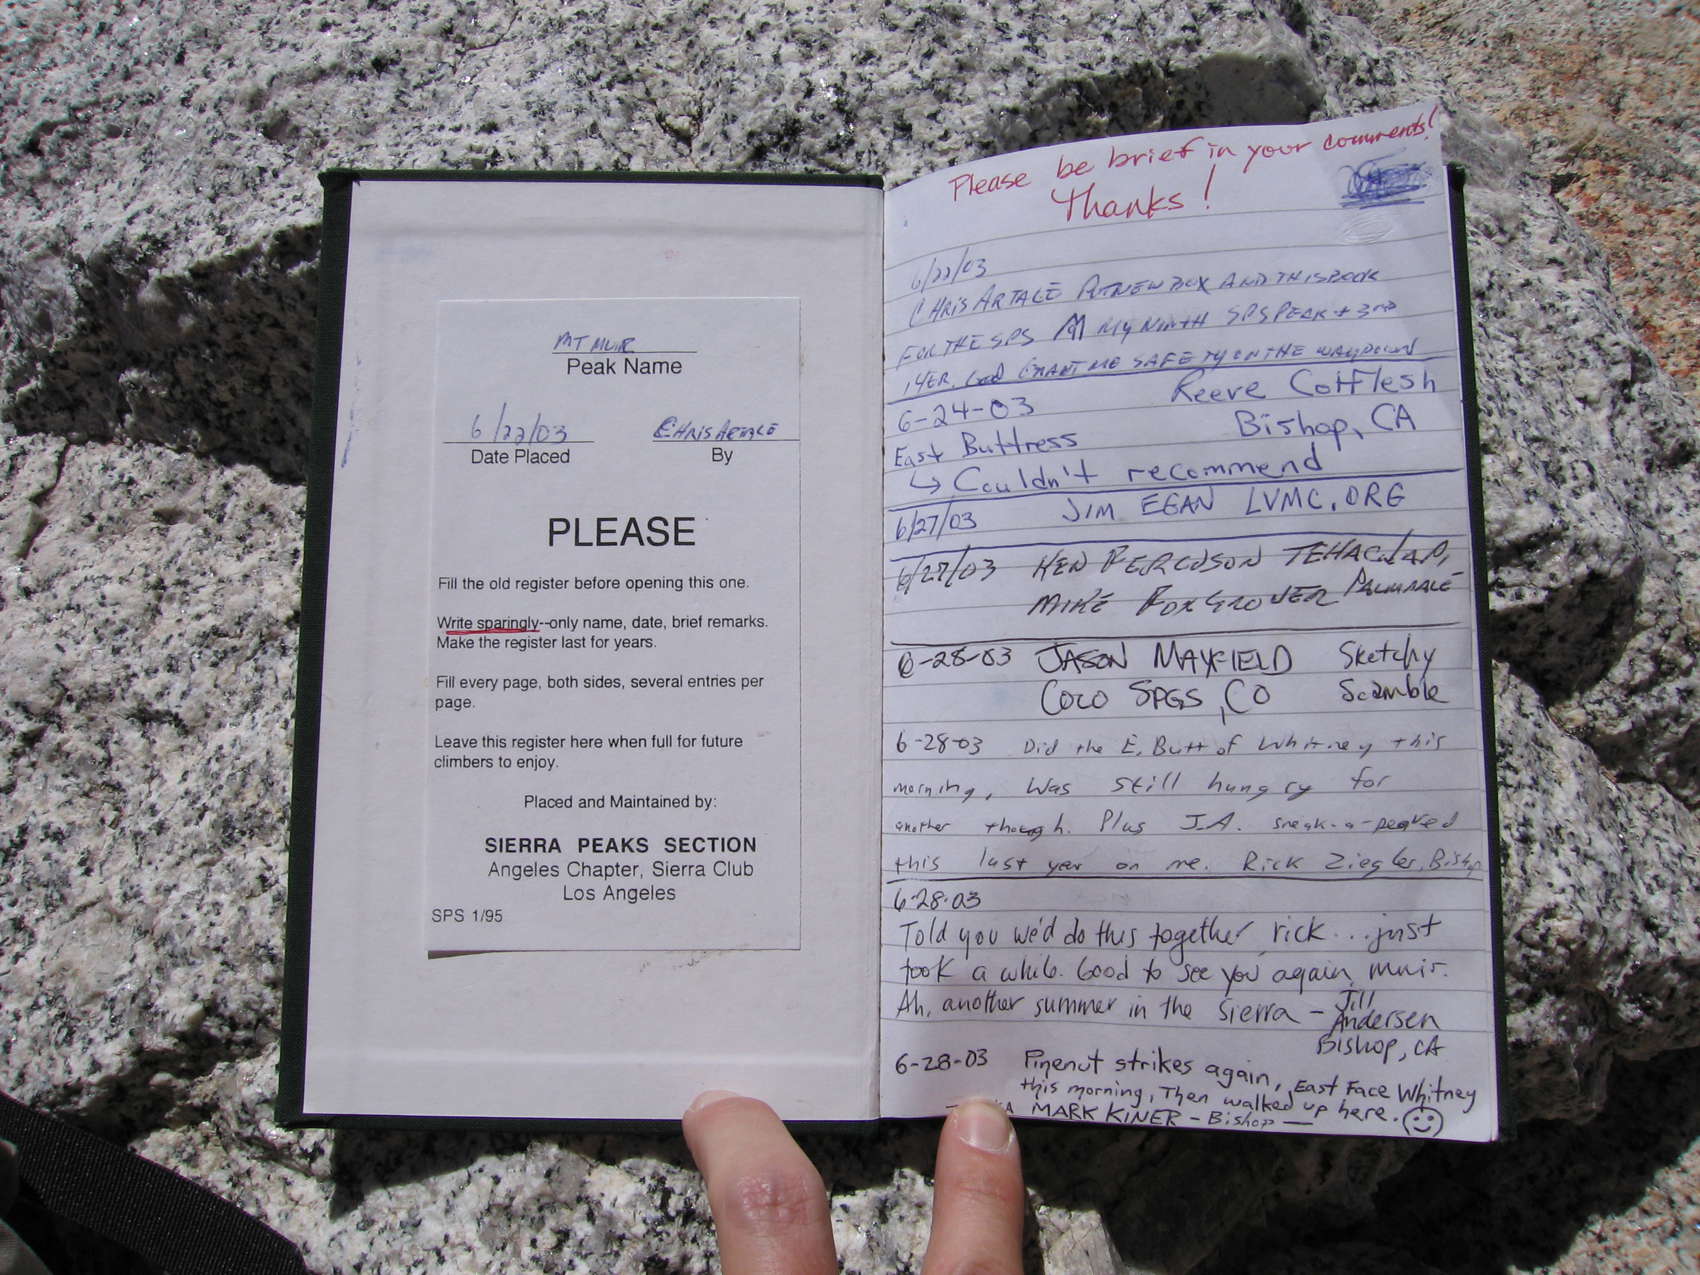 MT MUIR
Peak Name
6/22/03 CHRIS ARTALE
Date Placed By
PLEASE
Fill the old register before opening this one.
Write sparingly--only name, date, brief remarks.
Make the register last for years.
Fill every page, both sides, several entries per
page.
Leave this register here when full for future
climbers to enjoy.
Placed and Maintained by:
SIERRA PEAKS SECTION
Angeles Chapter, Sierra Club
Los Angeles
SPS 1/95
Please be brief in your comments!
Thanks!
6/22/03
CHRIS ARTALE PUT NEW BOX AND THIS BOOK
FOR THE SPS MY NINTH SPS PEAK + 3RD
14ER. God GRANT ME SAFETY ON THE WAY DOWN
6-24-03 Reeve
East Buttress Bishop, CA
↳ Couldn't recommend
6/27/03 JIM EGAN LVMC.ORG
6/27/03 KEN FERGUSON TEHACHAPI,
MIKE FOXGROVER PALMDALE
6-28-03 JASON MAYFIELD Sketchy
COLO SPGS, CO Scamble
6-28-03 Did the E. Butt of Whitney this
morning, was still hungry for
another though. Plus J.A. sneak-a-peaked
this last year on me. Rick Ziegler, Bishop
6-28-03
Told you we'd do this together rick...just
took a while. Good to see you again, muir.
Ah, another summer in the sierra - Jill
Andersen
Bishop, CA
6-28-03 Pinenut strikes again, East Face Whitney
this morning, Then walked up here.
MARK KINER - Bishop —